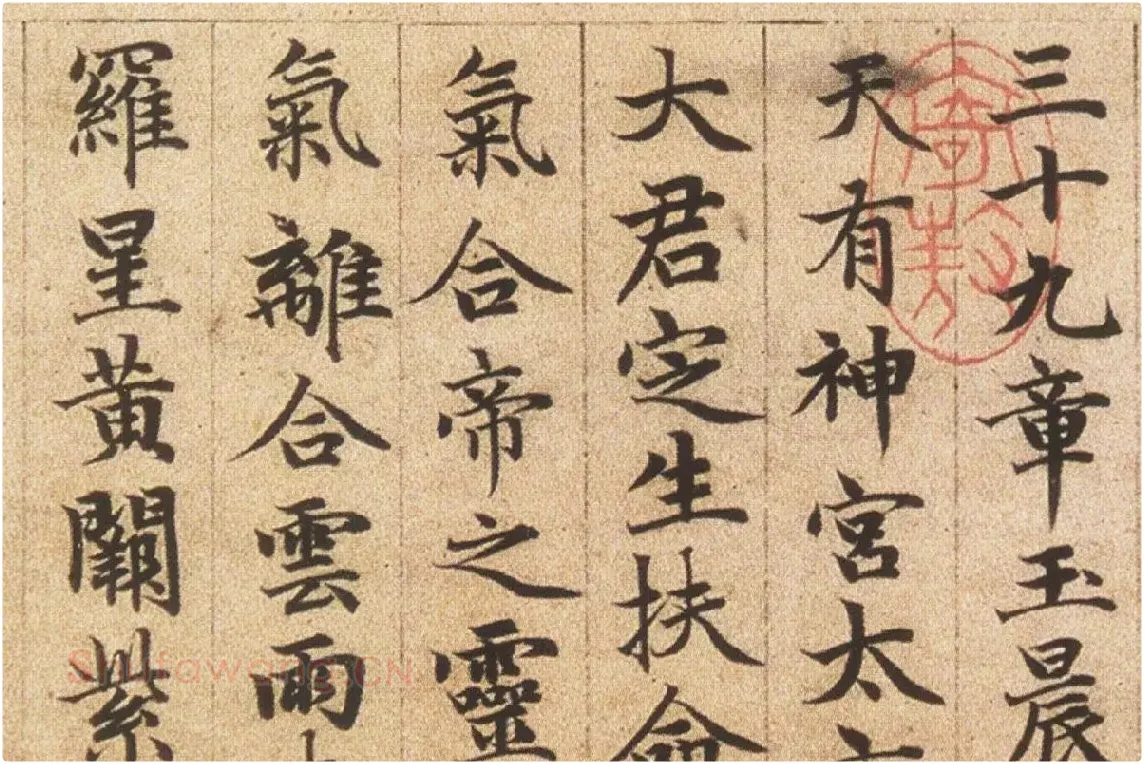 三十九章玉晨
天有神宮太
大君定生扶命
氣合帝之靈
氣離合雲雨
羅星黃闕紫
Shufawang.CN